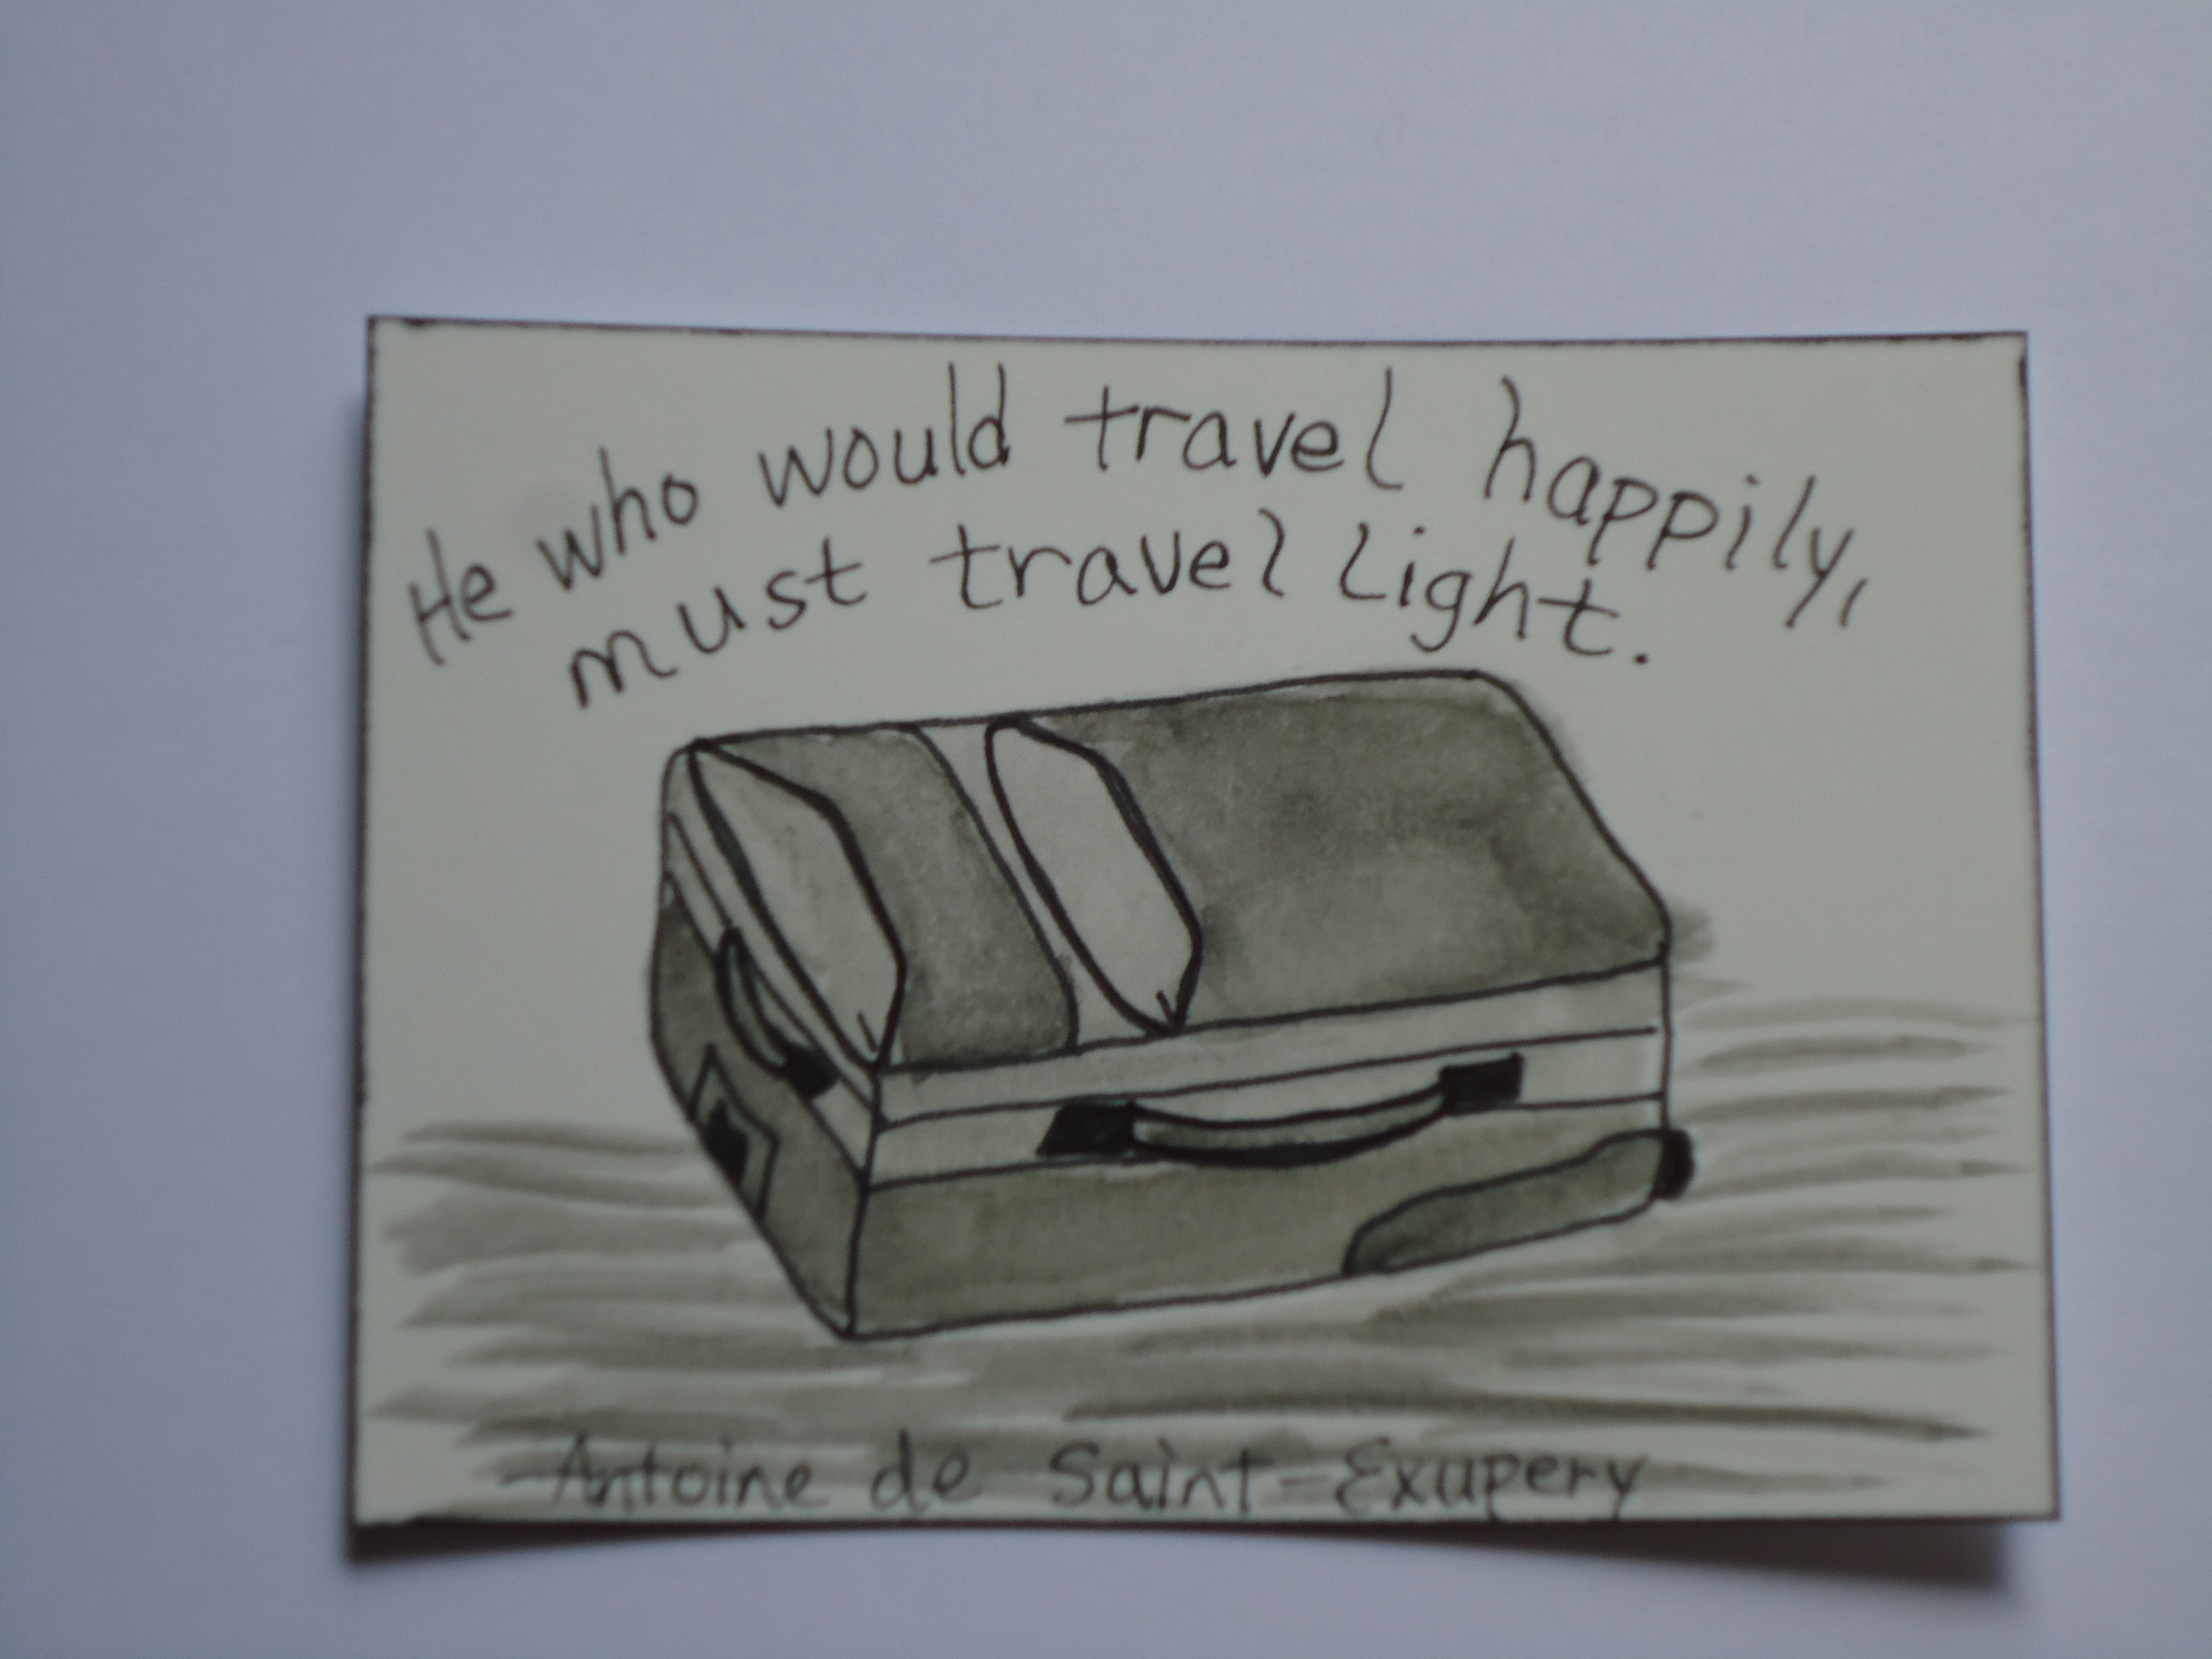 He who would travel happily,
must travel light.
-Antoine de Saint-Exupery